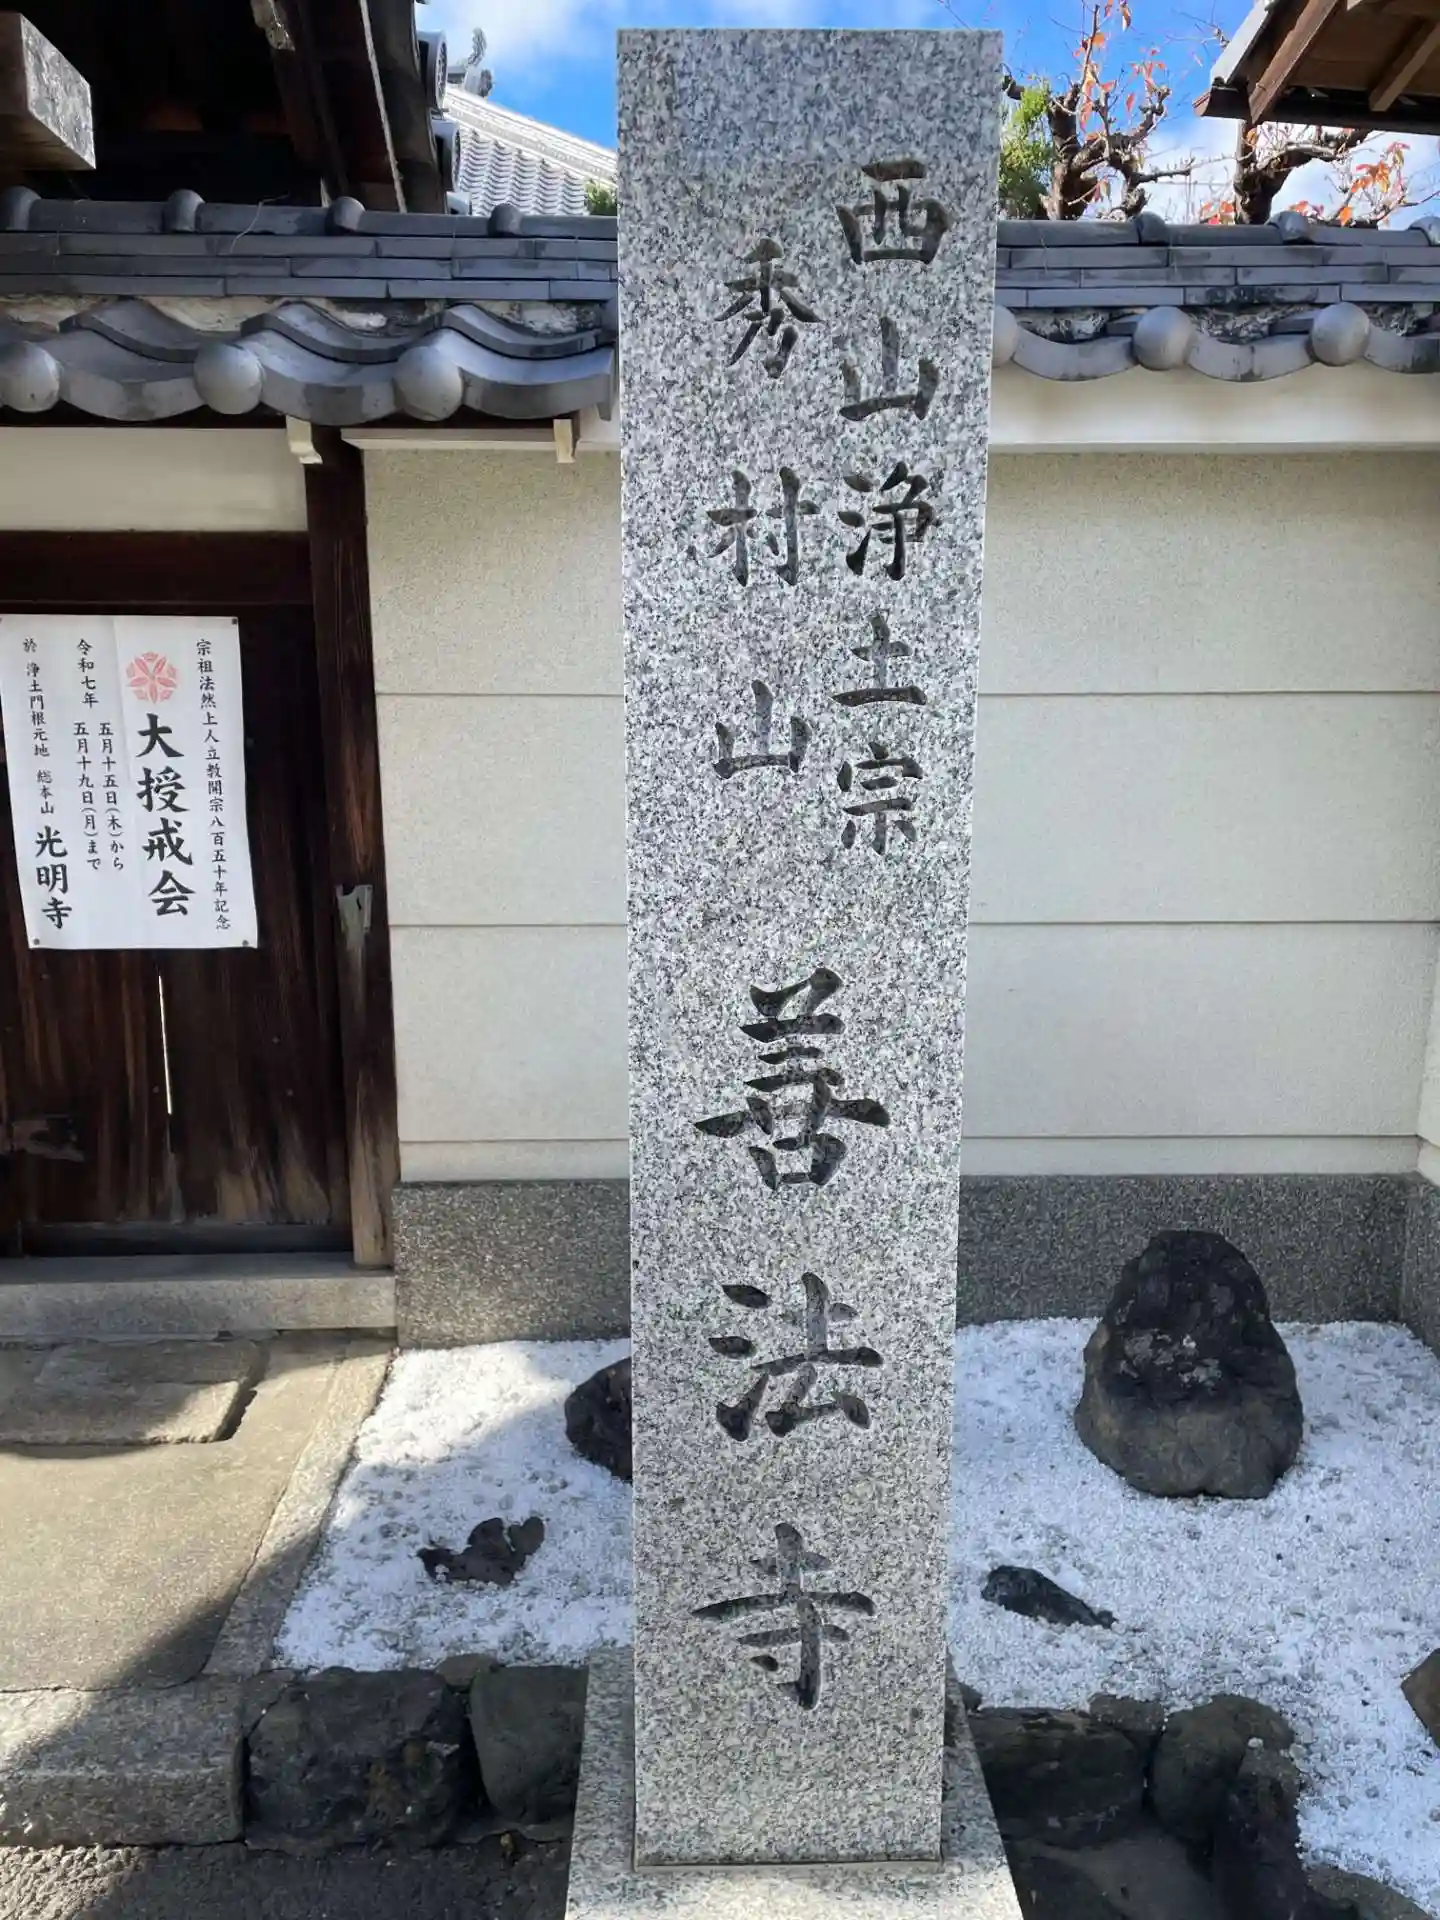 西山浄土宗
秀村山
善法寺
宗祖法然上人立教開宗八百五十年記念
大授戒会
令和七年
五月十五日(木)から
五月十九日(月)まで
於 浄土門根元地 総本山 光明寺